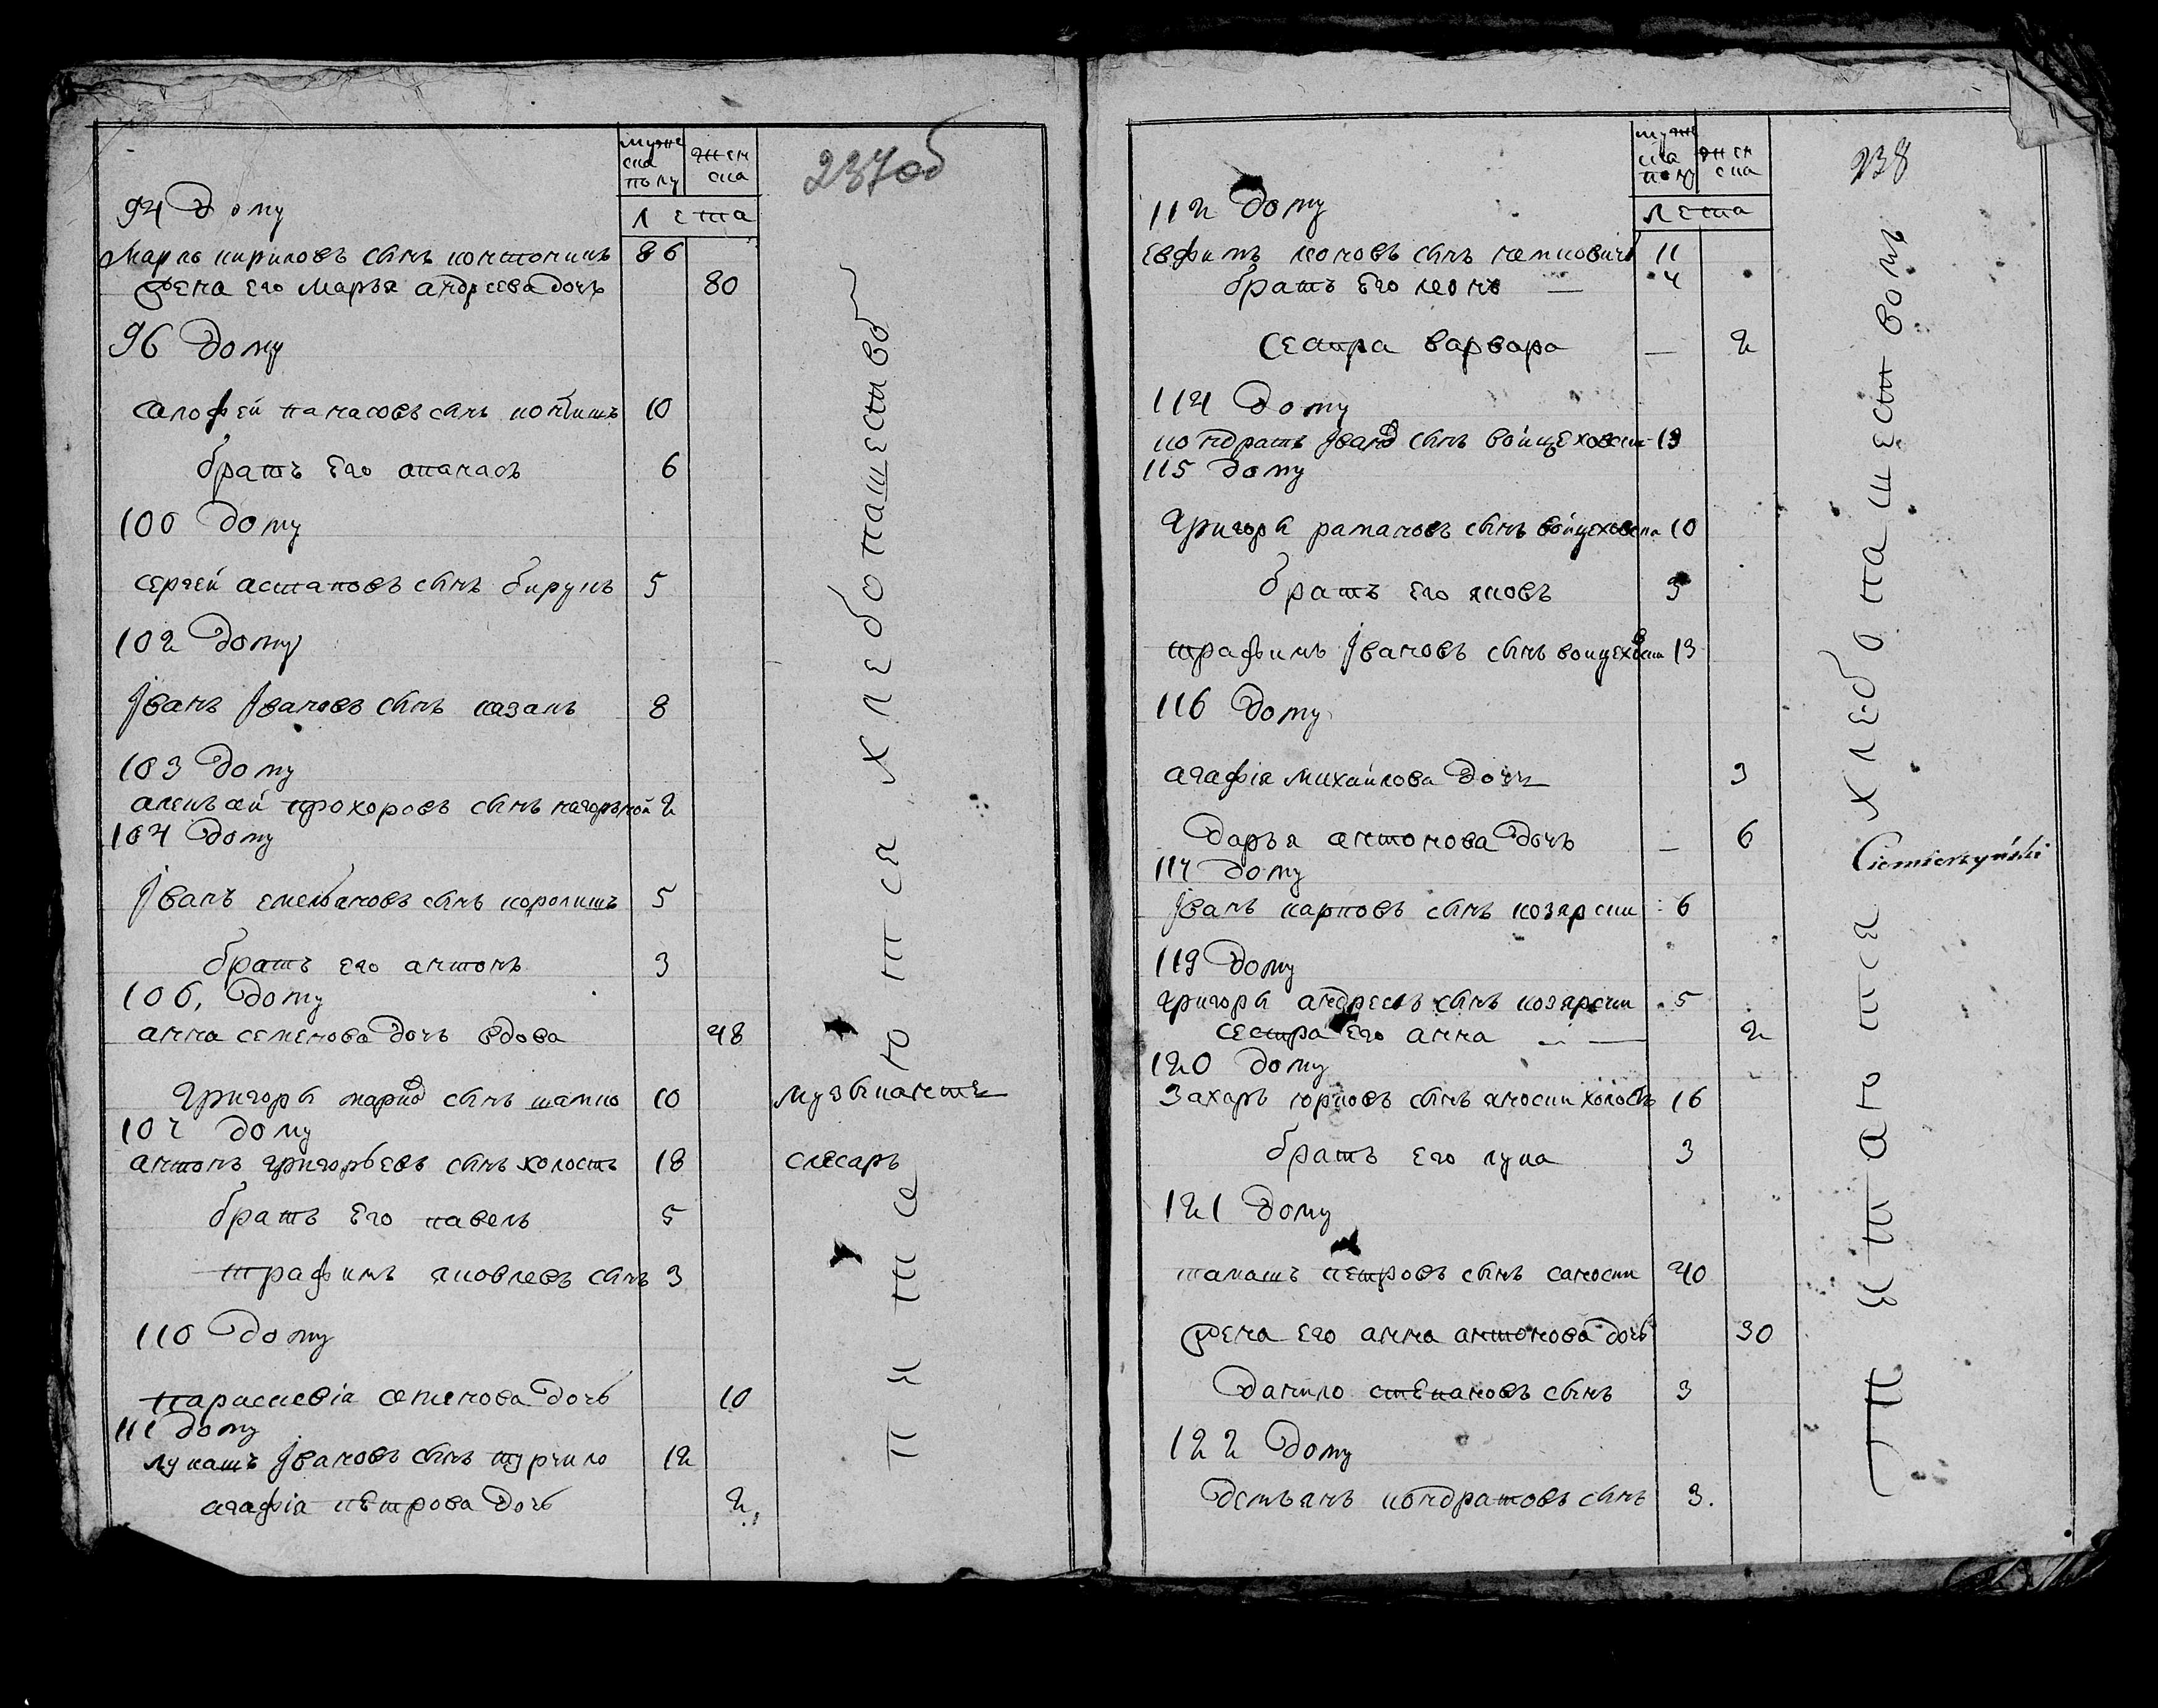 мужеска полу
женска
лета
237об
94 Дому
Марко кириловъ сынъ
Жена его Марья андреева Дочь
80
86
96 Дому
панасовъ сынъ
10
братъ его апанасъ
6
100 Дому
сергей астаповъ сынъ бирукъ
5
102 Дому
Iванъ Iвановъ сынъ казакъ
8
103 Дому
алексей прохоровъ сынъ нагорной 2
104 Дому
Iванъ емельяновъ сынъ
5
братъ его антонъ
3
106, Дому
анна семенова Дочь вдова
48
Григорей сынъ
10
музыкантъ
107 Дому
антонъ григорьевъ сынъ холостъ
18
слесаръ
братъ его павелъ
5
трафимъ яковлевъ сынъ 3
110 Дому
параскевiя семенова Дочь
10
111 Дому
лукашъ Iвановъ сынъ турчило
12
агафiя петрова Дочь
2
питаются хлебопашество
мужеска полу
женска
лета
238
112 Дому
евфимъ леоновъ сынъ
11
братъ его леонъ —
4
Сестра варвара — 2
114 Дому
кондратъ Iвановъ сынъ войцеховски 13
115 Дому
Григорей рамановъ сынъ войцеховски 10
братъ его яковъ
3
трафимъ Iвановъ сынъ войцеховски 13
116 Дому
агафiя михайлова Дочь
3
Дарья антонова Дочь — 6
117 Дому
Iванъ карповъ сынъ козярски 6
119 Дому
григорей андреевъ сынъ козярски 5
сестра его анна —
2
120 Дому
Захаръ юрковъ сынъ яноски холостъ 16
братъ его лука
3
121 Дому
тамашъ петровъ сынъ саноски
40
Жена его анна антонова дочь
30
Данило степановъ сынъ
3
122 Дому
Демьянъ кондратовъ сынъ
3.
питаются хлебопашествомъ